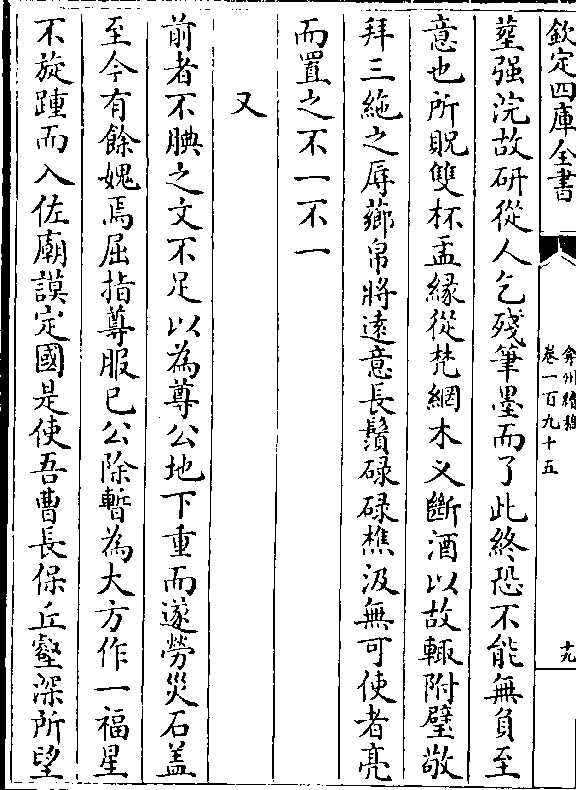 欽定四庫全書
弇州續稿
卷一百九十五
十九
墊强浣故研從人乞殘筆墨而了此終恐不能無負至
意也所貺雙杯盂緣從梵網木义斷酒以故輙附璧敬
拜三絁之辱薌帛將遠意長鬚碌碌樵汲無可使者亮
而置之不一不一
又
前者不腆之文不足以為尊公地下重而遂勞災石盖
至今有餘媿焉屈指尊服已公除暫為大方作一福星
不旋踵而入佐廟謨定國是使吾曹長保丘壑深所望